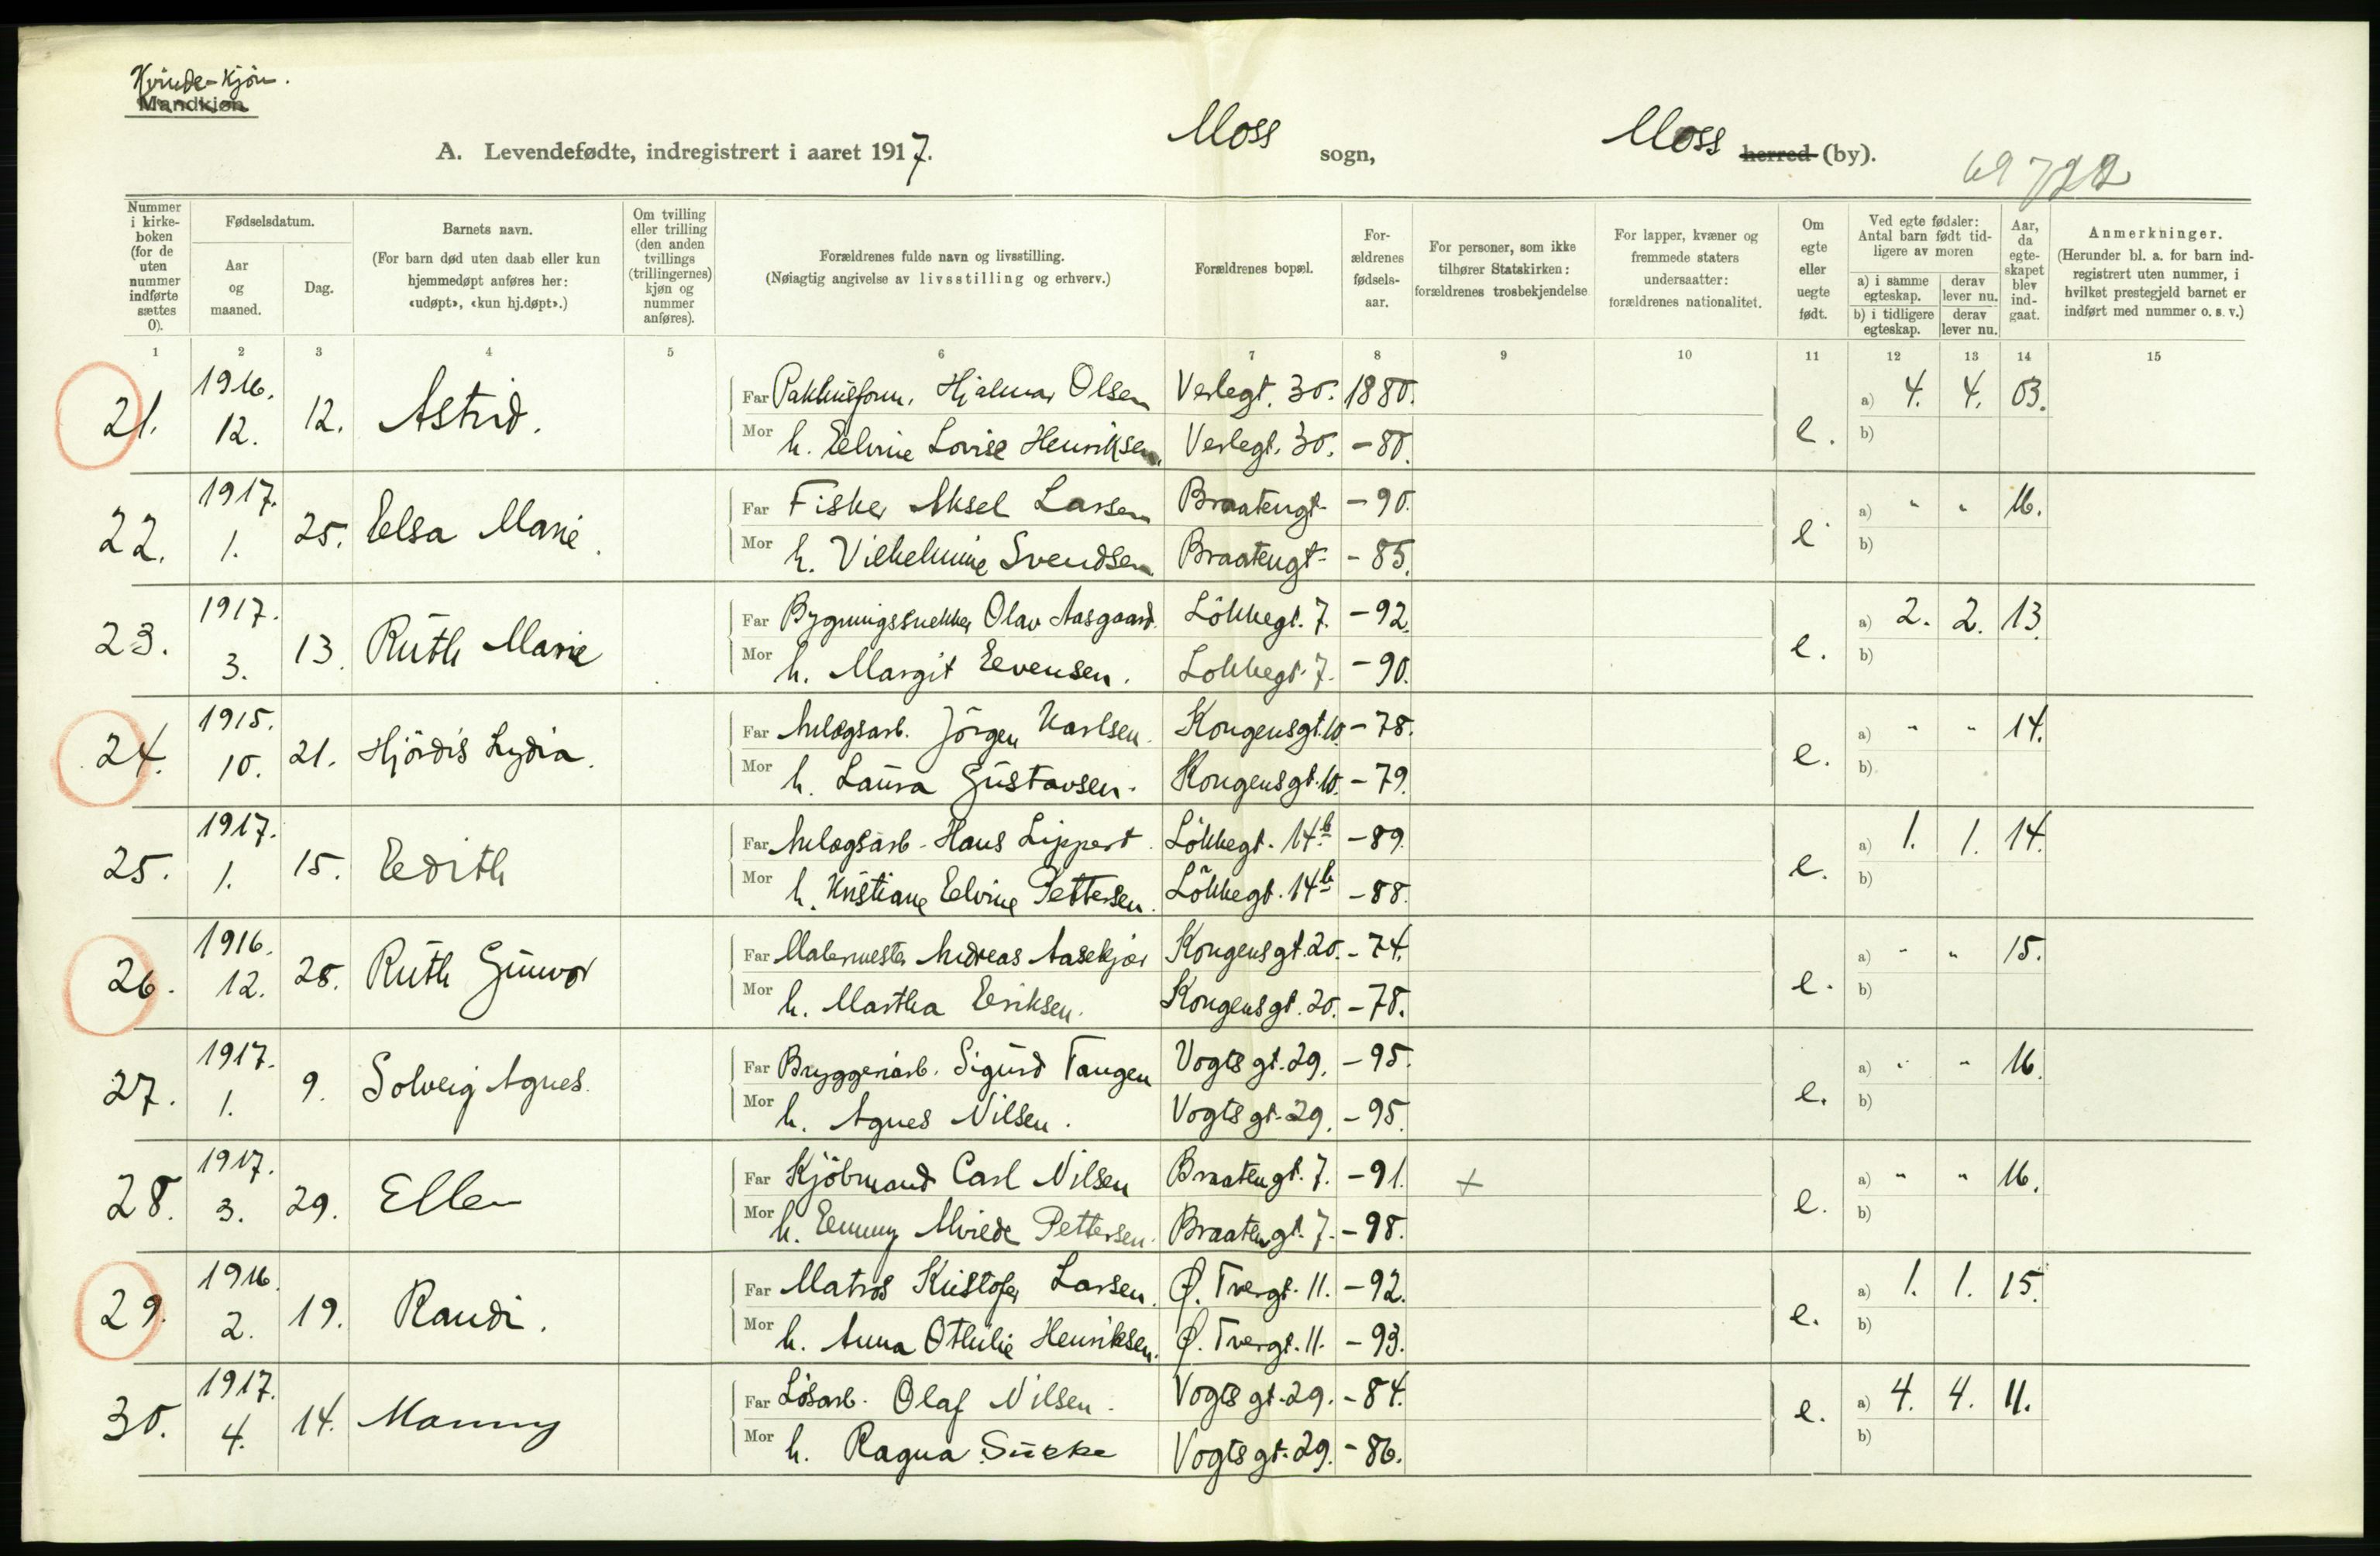 Kvinde-kjön.
Mandkjøn
A. Levendefødte, indregistrert i aaret 1917. Moss sogn, Moss herred (by).
69 722
Nummer i kirke-boken (for de uten nummer indførte sættes 0).
Fødselsdatum.
Aar og maaned.
Dag.
Barnets navn.
(For barn død uten daab eller kun hjemmedøpt anføres her: «udøpt», «kun hj.døpt».)
Om tvilling eller trilling (den anden tvillings (trillingernes) kjøn og nummer anføres).
Forældrenes fulde navn og livsstilling.
(Nøiagtig angivelse av livsstilling og erhverv.)
Forældrenes bopæl.
For-ældrenes fødsels-aar.
For personer, som ikke tilhører Statskirken: forældrenes trosbekjendelse
For lapper, kvæner og fremmede staters undersaatter: forældrenes nationalitet.
Om egte eller uegte født.
Ved egte fødsler: Antal barn født tid-ligere av moren
a) i samme egteskap.
derav lever nu.
b) i tidligere egteskap.
derav lever nu.
Aar, da egte-skapet blev ind-gaat.
Anmerkninger.
(Herunder bl. a. for barn ind-registrert uten nummer, i hvilket prestegjeld barnet er indført med nummer o. s. v.)
1 2 3 4 5 6 7 8 9 10 11 12 13 14 15
21. 1916. 12. 12. Astrid. Far Pakhusform. Hjalmar Olsen Verlegt. 30. 1880. e. a) 4. 4. 03.
Mor h. Eelvine Lovise Henriksen. Verlegt. 30. -80. b)
22. 1917. 1. 25. Eelsa Marie. Far Fisker Aksel Larsen Braatengt. -90. e. a) " " 16.
Mor h. Vilhelmine Svendsen. Braatengt. -85. b)
23. 1917. 3. 13. Ruth Marie Far Bygningssnekker Olav Aasgaard. Lökkegt. 7. -92. e. a) 2. 2. 13.
Mor h. Margit Eevensen. Lökkegt. 7. -90. b)
24. 1915. 10. 21. Hjördis Lydia. Far Anlægsarb. Jörgen Karlsen. Kongensgt. 10. -78. e. a) " " 14.
Mor h. Laura Gustavsen. Kongensgt. 10. -79. b)
25. 1917. 1. 15. Eedith Far Anlægsarb. Hans Lippert. Lökkegt. 14b -89. e. a) 1. 1. 14.
Mor h. Kristiane Eelvine Pettersen. Lökkegt. 14b -88. b)
26. 1916. 12. 28. Ruth Gunvor Far Malermester Andreas Aasekjær Kongensgt. 20. -74. e. a) " " 15.
Mor h. Martha Eeriksen. Kongensgt. 20. -78. b)
27. 1917. 1. 9. Solveig Agnes. Far Bryggeriarb. Sigurd Tangen Vogts gt. 29. -95. e. a) " " 16.
Mor h. Agnes Nilsen. Vogts gt. 29. -95. b)
28. 1917. 3. 29. Ellen Far Kjöbmand Carl Nilsen Braatengt. 7. -91. + e. a) " " 16.
Mor h. Eemmy Alvilde Pettersen. Braatengt. 7. -98. b)
29. 1916. 2. 19. Randi. Far Matros Kristofer Larsen. Ø. Tvergt. 11. -92. e. a) 1. 1. 15.
Mor h. Anna Othilie Henriksen. Ø. Tvergt. 11. -93. b)
30. 1917. 4. 14. Manny Far Lösarb. Olaf Nilsen. Vogts gt. 29. -84. e. a) 4. 4. 11.
Mor h. Ragna Sücke Vogts gt. 29. -86. b)